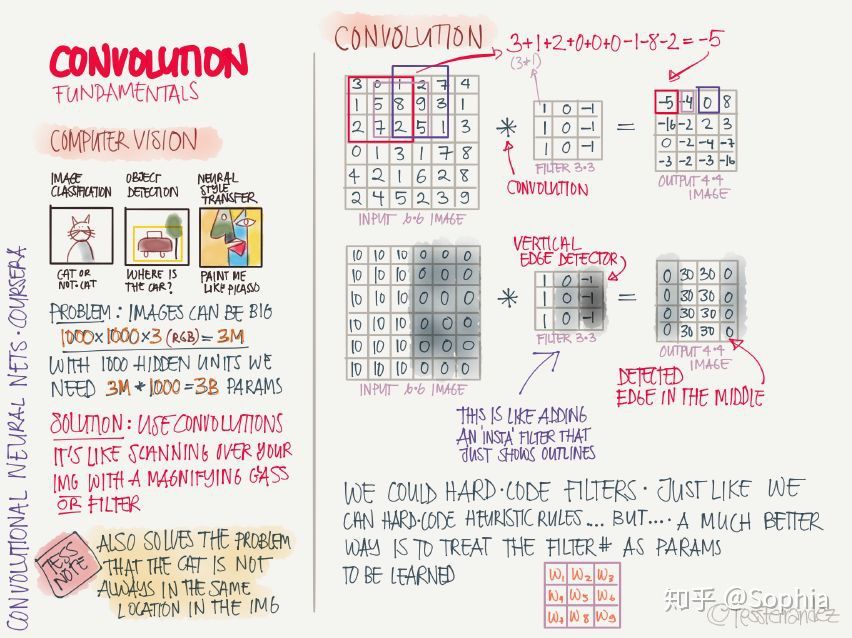 CONVOLUTION
FUNDAMENTALS
COMPUTER VISION
IMAGE
CLASSIFICATION
CAT OR
NOT-CAT
OBJECT
DETECTION
WHERE IS
THE CAR?
NEURAL
STYLE
TRANSFER
PAINT ME
LIKE PICASSO
PROBLEM: IMAGES CAN BE BIG
1000×1000×3 (RGB) = 3M
WITH 1000 HIDDEN UNITS WE
NEED 3M * 1000 = 3B PARAMS
SOLUTION: USE CONVOLUTIONS
IT'S LIKE SCANNING OVER YOUR
IMG WITH A MAGNIFYING GASS
OR FILTER
TESS NOTE
ALSO SOLVES THE PROBLEM
THAT THE CAT IS NOT
ALWAYS IN THE SAME
LOCATION IN THE IMG
CONVOLUTIONAL NEURAL NETS · COURSERA
CONVOLUTION
3+1+2+0+0+0-1-8-2=-5
(3*1)
3 0 1 2 7 4
1 5 8 9 3 1
2 7 2 5 1 3
0 1 3 1 7 8
4 2 1 6 2 8
2 4 5 2 3 9
INPUT 6·6 IMAGE
*
CONVOLUTION
1 0 -1
1 0 -1
1 0 -1
FILTER 3·3
=
-5 -4 0 8
-16 -2 2 3
0 -2 -4 -7
-3 -2 -3 -16
OUTPUT 4·4
IMAGE
10 10 10 0 0 0
10 10 10 0 0 0
10 10 10 0 0 0
10 10 10 0 0 0
10 10 10 0 0 0
10 10 10 0 0 0
INPUT 6·6 IMAGE
*
VERTICAL
EDGE DETECTOR
1 0 -1
1 0 -1
1 0 -1
FILTER 3·3
=
0 30 30 0
0 30 30 0
0 30 30 0
0 30 30 0
OUTPUT 4·4
IMAGE
DETECTED
EDGE IN THE MIDDLE
THIS IS LIKE ADDING
AN 'INSTA' FILTER THAT
JUST SHOWS OUTLINES
WE COULD HARD-CODE FILTERS · JUST LIKE WE
CAN HARD-CODE HEURISTIC RULES... BUT.... A MUCH BETTER
WAY IS TO TREAT THE FILTER # AS PARAMS
TO BE LEARNED
W1 W2 W3
W4 W5 W6
W7 W8 W9
知乎 @Sophia
©TessFerrandez